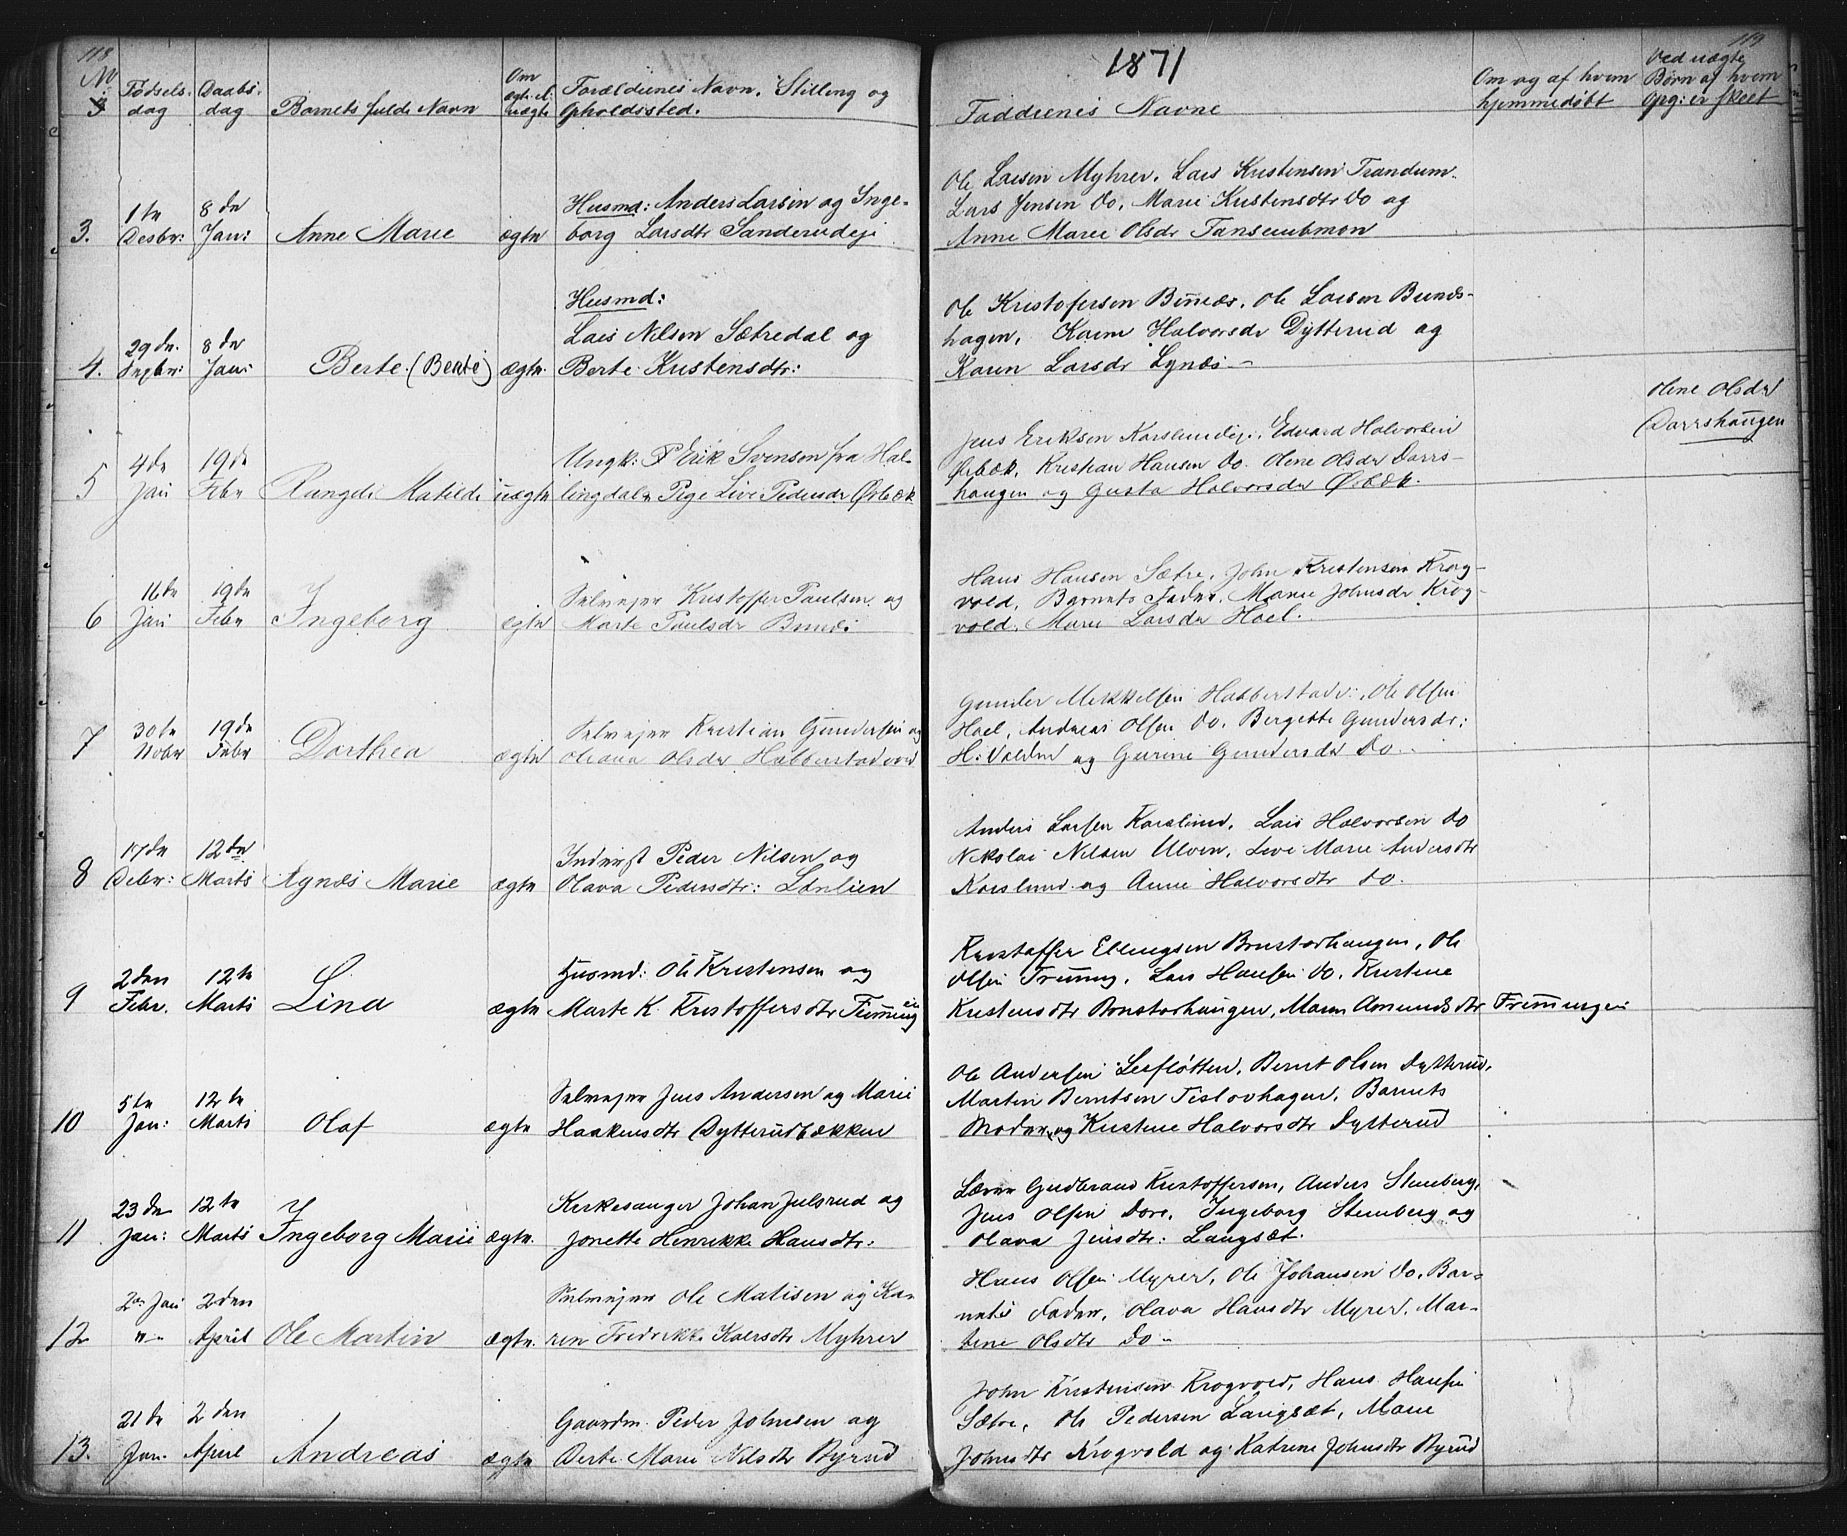 118
1871
119
No 3
Fødsels-dag
Daabs-dag
Barnets fulde Navn
Om ægte el. uægte
Forældrenes Navn, Stilling og Opholdssted.
Faddrenes Navne
Om og af hvem hjemmedøbt
Ved uægte Børn af hvem Opg: er skeet
3.
1te Desbr:
8de Jan:
Anne Marie
ægte
Husmd: Anders Larsen og Inge-
borg Larsdtr Sanderudeje
Ole Larsen Myhrer. Lars Kristensen Trandum.
Lars Jensen do, Marie Kristensdtr do og
Anne Marie Olsdr
4.
29de
8de Jan:
Berte (Berte)
ægte
Husmd:
Lars Nilsen Sætredal og
Berte Kristensdtr:
Ole Kristofersen Bunæs, Ole Larsen Bunæs-
hagen, Karen Halvorsdr Dytterud og
Karen Larsdr Lynæs
5
4de Jan
19de Febr
Rangdi Matilde
uægte
Ungk: Erik Svensen fra Hal-
lingdal Pige Live Pedersdr Ørbæk
Jens Eriksen Karslundeje, Edvard Halvorsen
Ørbæk, Kristian Hansen do. Olene Olsdr Darrs-
haugen og Gusta Halvorsdr Ørbæk.
Olene Olsdr
Darrshaugen
6
16de Jan
19de Febr
Ingeborg
ægte
Selveejer Kristoffer Paulsen og
Marte Paulsdr Bunæs
Hans Hansen Sætre, John Kristensen Krog-
vold, Barnets Fader, Marie Johnsdr Krog-
vold, Marie Larsdr Hoel.
7
30te Nobr
19de Febr
Dorthea
ægte
Selveejer Kristian Gundersen og
Oleana Olsdr Habberstadeed
Gunder Mikkelsen Habberstade:, Ole Olsen
Hoel, Andreas Olsen do. Bergette Gundersdr:
H: og Gurine Gundersdr do
8
17de Debr:
12de Marts
Agnæs Marie
ægte
Inderst Peder Nilsen og
Olava Pedersdtr: Lønlien
Anders Larsen Karslund, Lars Halvorsen do
Nikolai Nilsen Ulven, Live Marie Andersdtr
Karslund og Anne Halvorsdtr do.
9
2den Febr.
12te Marts
Lina
ægte
Husmd: Ole Kristensen og
Marte K. Kristoffersdtr
Kristoffer Ellingsen Brustorhaugen, Ole
Olsen Lars Hansen do, Kristine
Kristensdtr Brustorhaugen, Maren Amundsdtr
10
5te Jan:
12te Marts
Olaf
ægte
Selveejer Jens Andersen og Marie
Haakensdtr Dytterudbækken
Ole Andersen Leefløtten, Bernt Olsen Dytterud,
Martin Berntsen Tislovhagen, Barnets
Moder, og Kristine Halvorsdtr Dytterud
11
23de Jan:
12te Marts
Ingeborg Marie
ægte.
Kirkesanger Johan Julsrud og
Jonette Henrikke Hansdtr:
Lærer Gudbrand Kristoffersen, Anders Stenberg,
Jens Olsen Ingeborg Stenberg og
Olava Jensdtr: Langsæt.
12
2den Jan
2den April
Ole Martin
ægte.
Selveejer Ole Matisen og Ka-
ren Fredrikke Myhrer
Hans Olsen Myrer, Ole Johansen do, Bar-
nets Fader, Olava Hansdtr Myrer, Mar-
tine Olsdtr do
13.
21de Jan.
2den April
Andreas
ægte
Gaardm. Peder Johnsen og
Berte Marie Nilsdtr Byrud
John Kristensen Krogvold, Hans Hansen
Sætre, Ole Pedersen Langsæt, Marie
Johnsdtr Krogvold og Katrine Johnsdtr Byrud